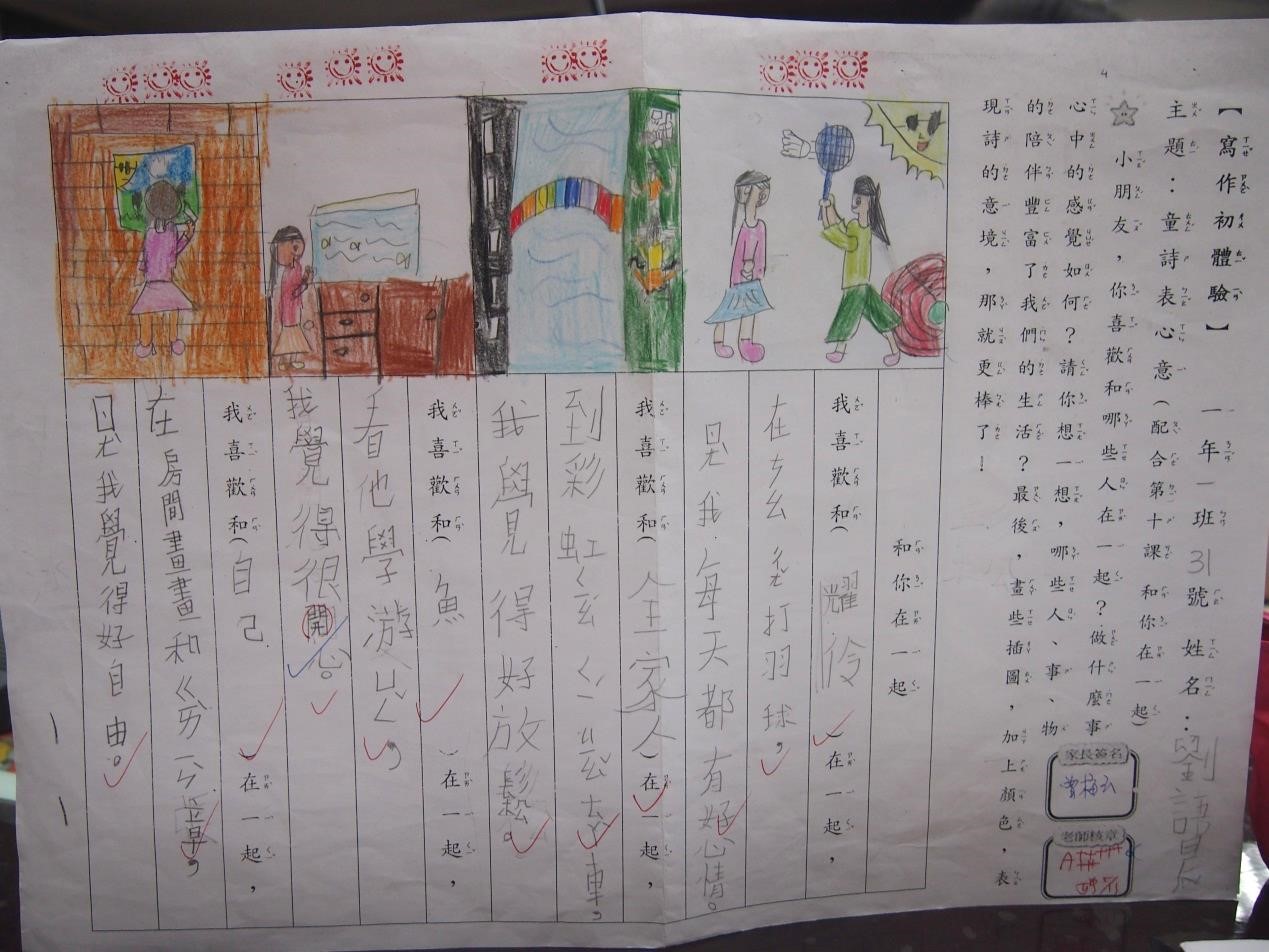 【寫作初體驗】 一年一班31號 姓名：劉
主題：童詩表心意（配合第十課 和你在一起）
小朋友，你喜歡和哪些人在一起？做什麼事
心中的感覺如何？請你想一想，哪些人、事、物
的陪伴豐富了我們的生活？最後，畫些插圖，加上顏色，表
現詩的意境，那就更棒了！
家長簽名
老師核章
和你在一起
我喜歡和（耀伶）在一起，
在ㄘㄠ ㄔㄤˇ打羽球，
ㄖㄤˋ我每天都有好心情。
我喜歡和（全家人）在一起，
到彩虹ㄑㄧㄠˊ ㄑㄧˊ
我學見得好放鬆。
我喜歡和（魚）在一起，
看他學游ㄩㄥˇ，
我覺得很開心。
我喜歡和（自己）在一起，
在房間畫畫和ㄍㄢ
ㄖㄤˋ我覺得好自由。